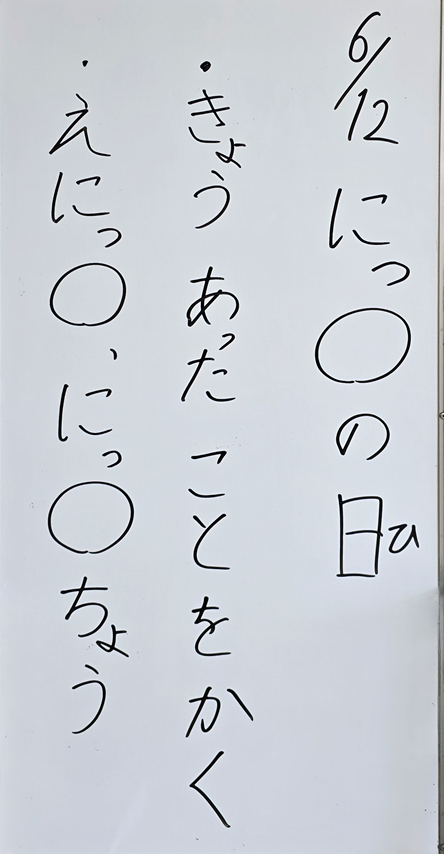 6/12 にっ〇の日ひ
・きょう あったことをかく
・えにっ〇、にっ〇ちょう